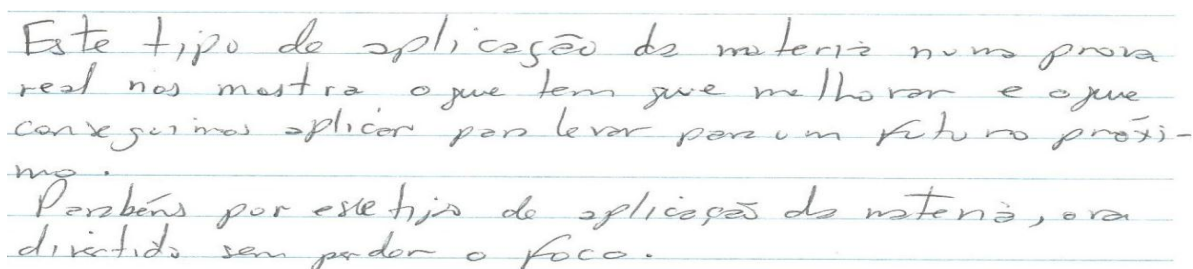 Este tipo de aplicação da materia numa prova
real nos mostra o que tem que melhorar e o que
conseguimos aplicar para levar para um futuro próxi-
mo.
Parabéns por esse tipo de aplicação da materia,
divertido sem perder o foco.